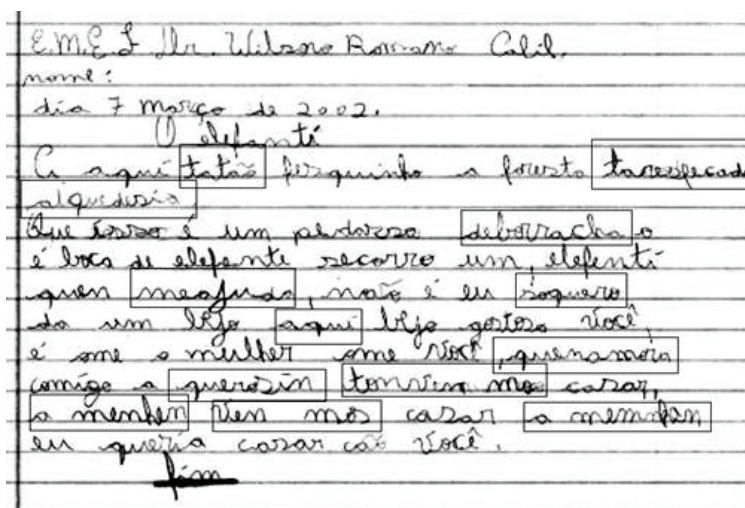 E.M.E.I Dr. Wilsono Romano Calil.
nome:
dia 7 março de 2002.
O elefanti
a aqui tatão fesquinho a foresto
alquedisia
Que isso é um pedarso deborracha o
é boca de elefente socorro um, elefenti
quen meajuda, não é eu soquero
da um bejo aqui bejo gostoso você,
é ome o mulher ome você, quenamora
comigo a querosin tonvem mos casar,
a menhen ven mos casar a menhen
eu queria casar cão você.
fim